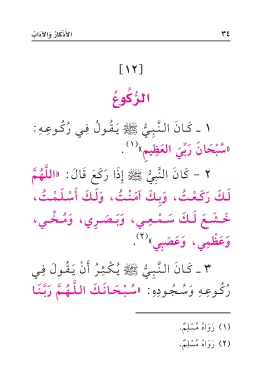 ٣٤ الأَذْكَارُ وَالآدَابُ
[١٢]
الرُّكُوعُ
١ - كَانَ النَّبِيُّ ﷺ يَقُولُ فِي رُكُوعِهِ:
«سُبْحَانَ رَبِّيَ العَظِيمِ»(١).
٢ - كَانَ النَّبِيُّ ﷺ إِذَا رَكَعَ قَالَ: «اللَّهُمَّ
لَكَ رَكَعْتُ، وَبِكَ آمَنْتُ، وَلَكَ أَسْلَمْتُ،
خَشَعَ لَكَ سَمْعِي، وَبَصَرِي، وَمُخِّي،
وَعَظْمِي، وَعَصَبِي»(٢).
٣ - كَانَ النَّبِيُّ ﷺ يُكْثِرُ أَنْ يَقُولَ فِي
رُكُوعِهِ وَسُجُودِهِ: «سُبْحَانَكَ اللَّهُمَّ رَبَّنَا
(١) رَوَاهُ مُسْلِمٌ.
(٢) رَوَاهُ مُسْلِمٌ.